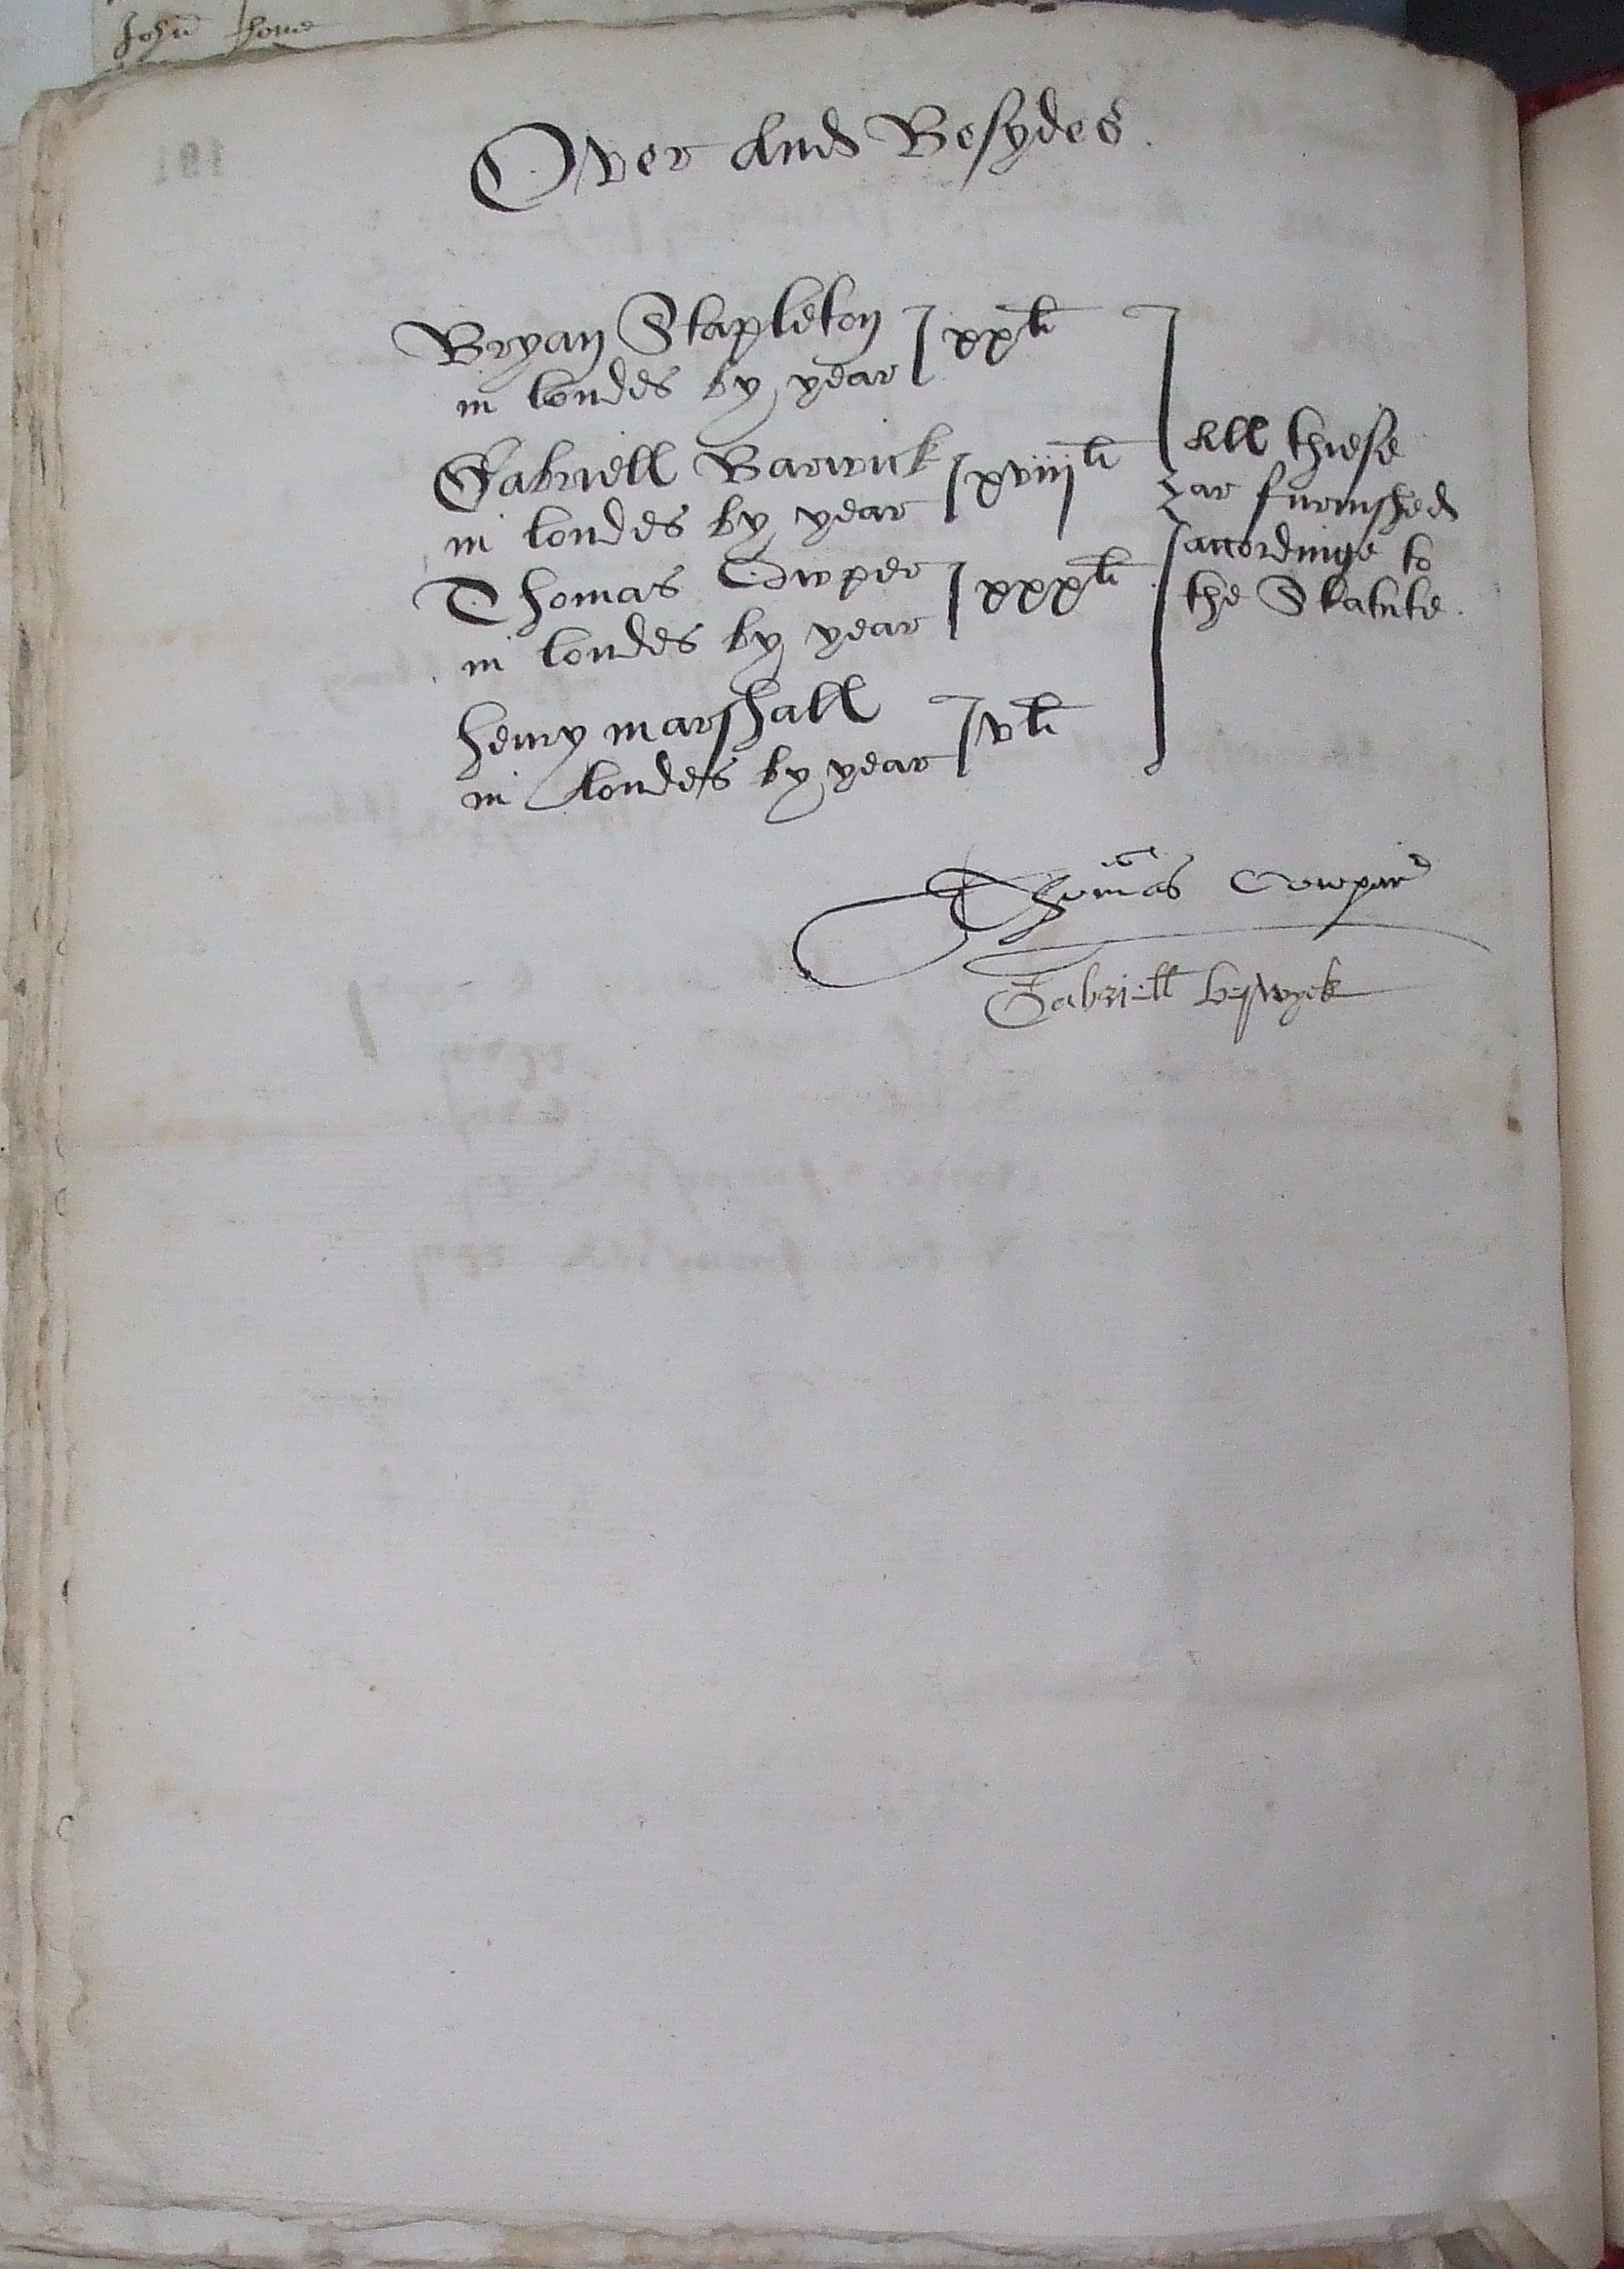 John
Over And Besydes.
Bryan Stapleton
in londes by year
xx li
Gabriell Barwick
in londes by year
xviij li
Thomas Cowper
in londes by year
xxx li
henry marshall
in londes by year
v li
All thiese
ar furnished
accordinge to
the Statute.
Thomas Cowper
Gabriell